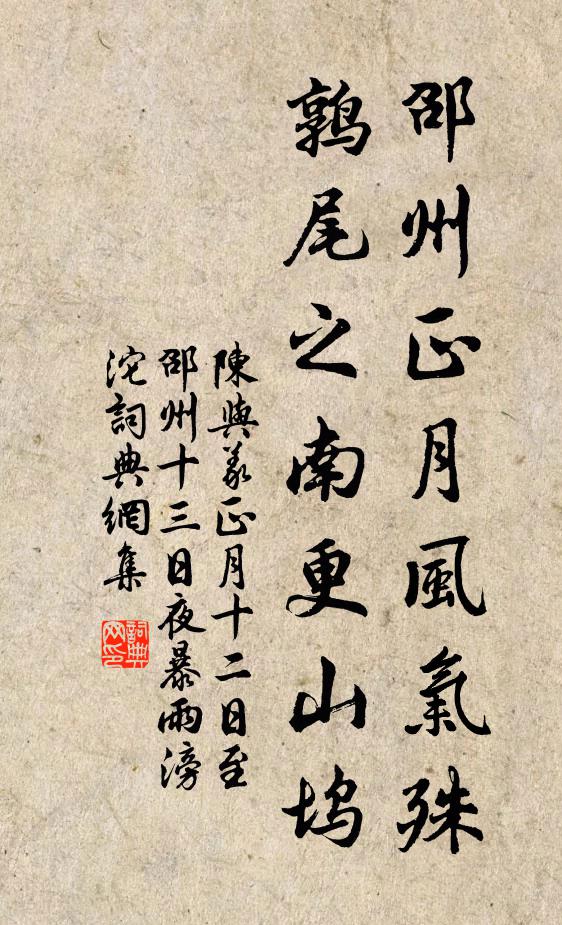 邵州正月風氣殊
鶉尾之南更山塢
陳與義正月十二日至
邵州十三日夜暴雨滂
沱詞典網集
詞典
网印